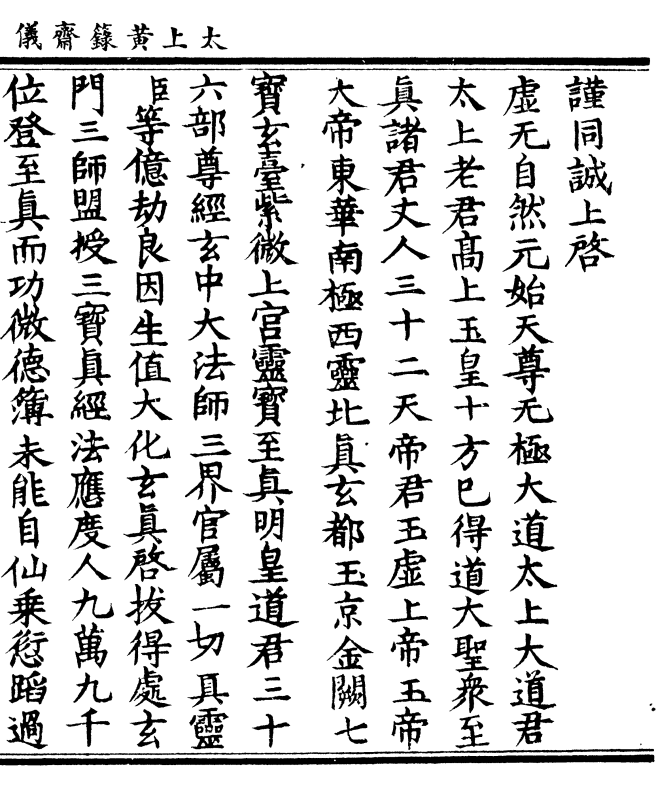 太上黃籙齋儀
謹同誠上啓
虛无自然元始天尊无極大道太上大道君
太上老君髙上玉皇十方已得道大聖衆至
眞諸君丈人三十二天帝君玉虛上帝玉帝
大帝東華南極西靈北眞玄都玉京金闕七
寶玄臺紫微上宮靈寶至眞明皇道君三十
六部尊經玄中大法師三界官屬一切眞靈
臣等億劫良因生值大化玄眞啓拔得處玄
門三師盟授三寶眞經法應度人九萬九千
位登至眞而功微德簿未能自仙乗愆蹈過